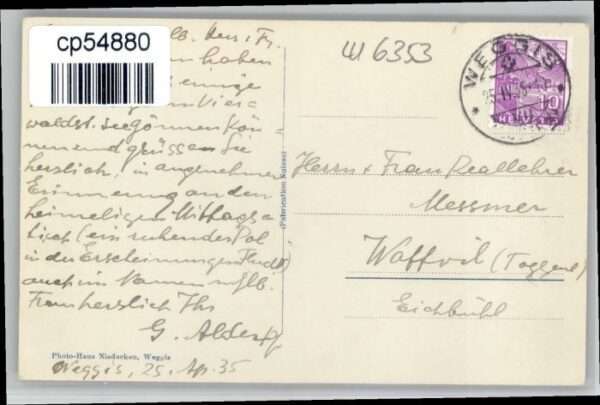 cp54880
lb. Herr & Fr.
haben
einige
Vier-
waldst. see gönnen kön-
nen und grüssen Sie
herzlich, in angenehmer
Erinnerung an den
heimeligen Mittags-
tisch (ein ruhender Pol
in der Erscheinungen Flucht)
auch im Namen m/lb.
Frau herzlich Ihr
G.
Photo-Haus Niederken, Weggis
Weggis, 25. Ap. 35
(Fabrication Suisse)
W 6353
WEGGIS
10
HELVETIA
Herrn & Frau Reallehrer
Messmer
Wattwil (Toggenb)
Eichbühl